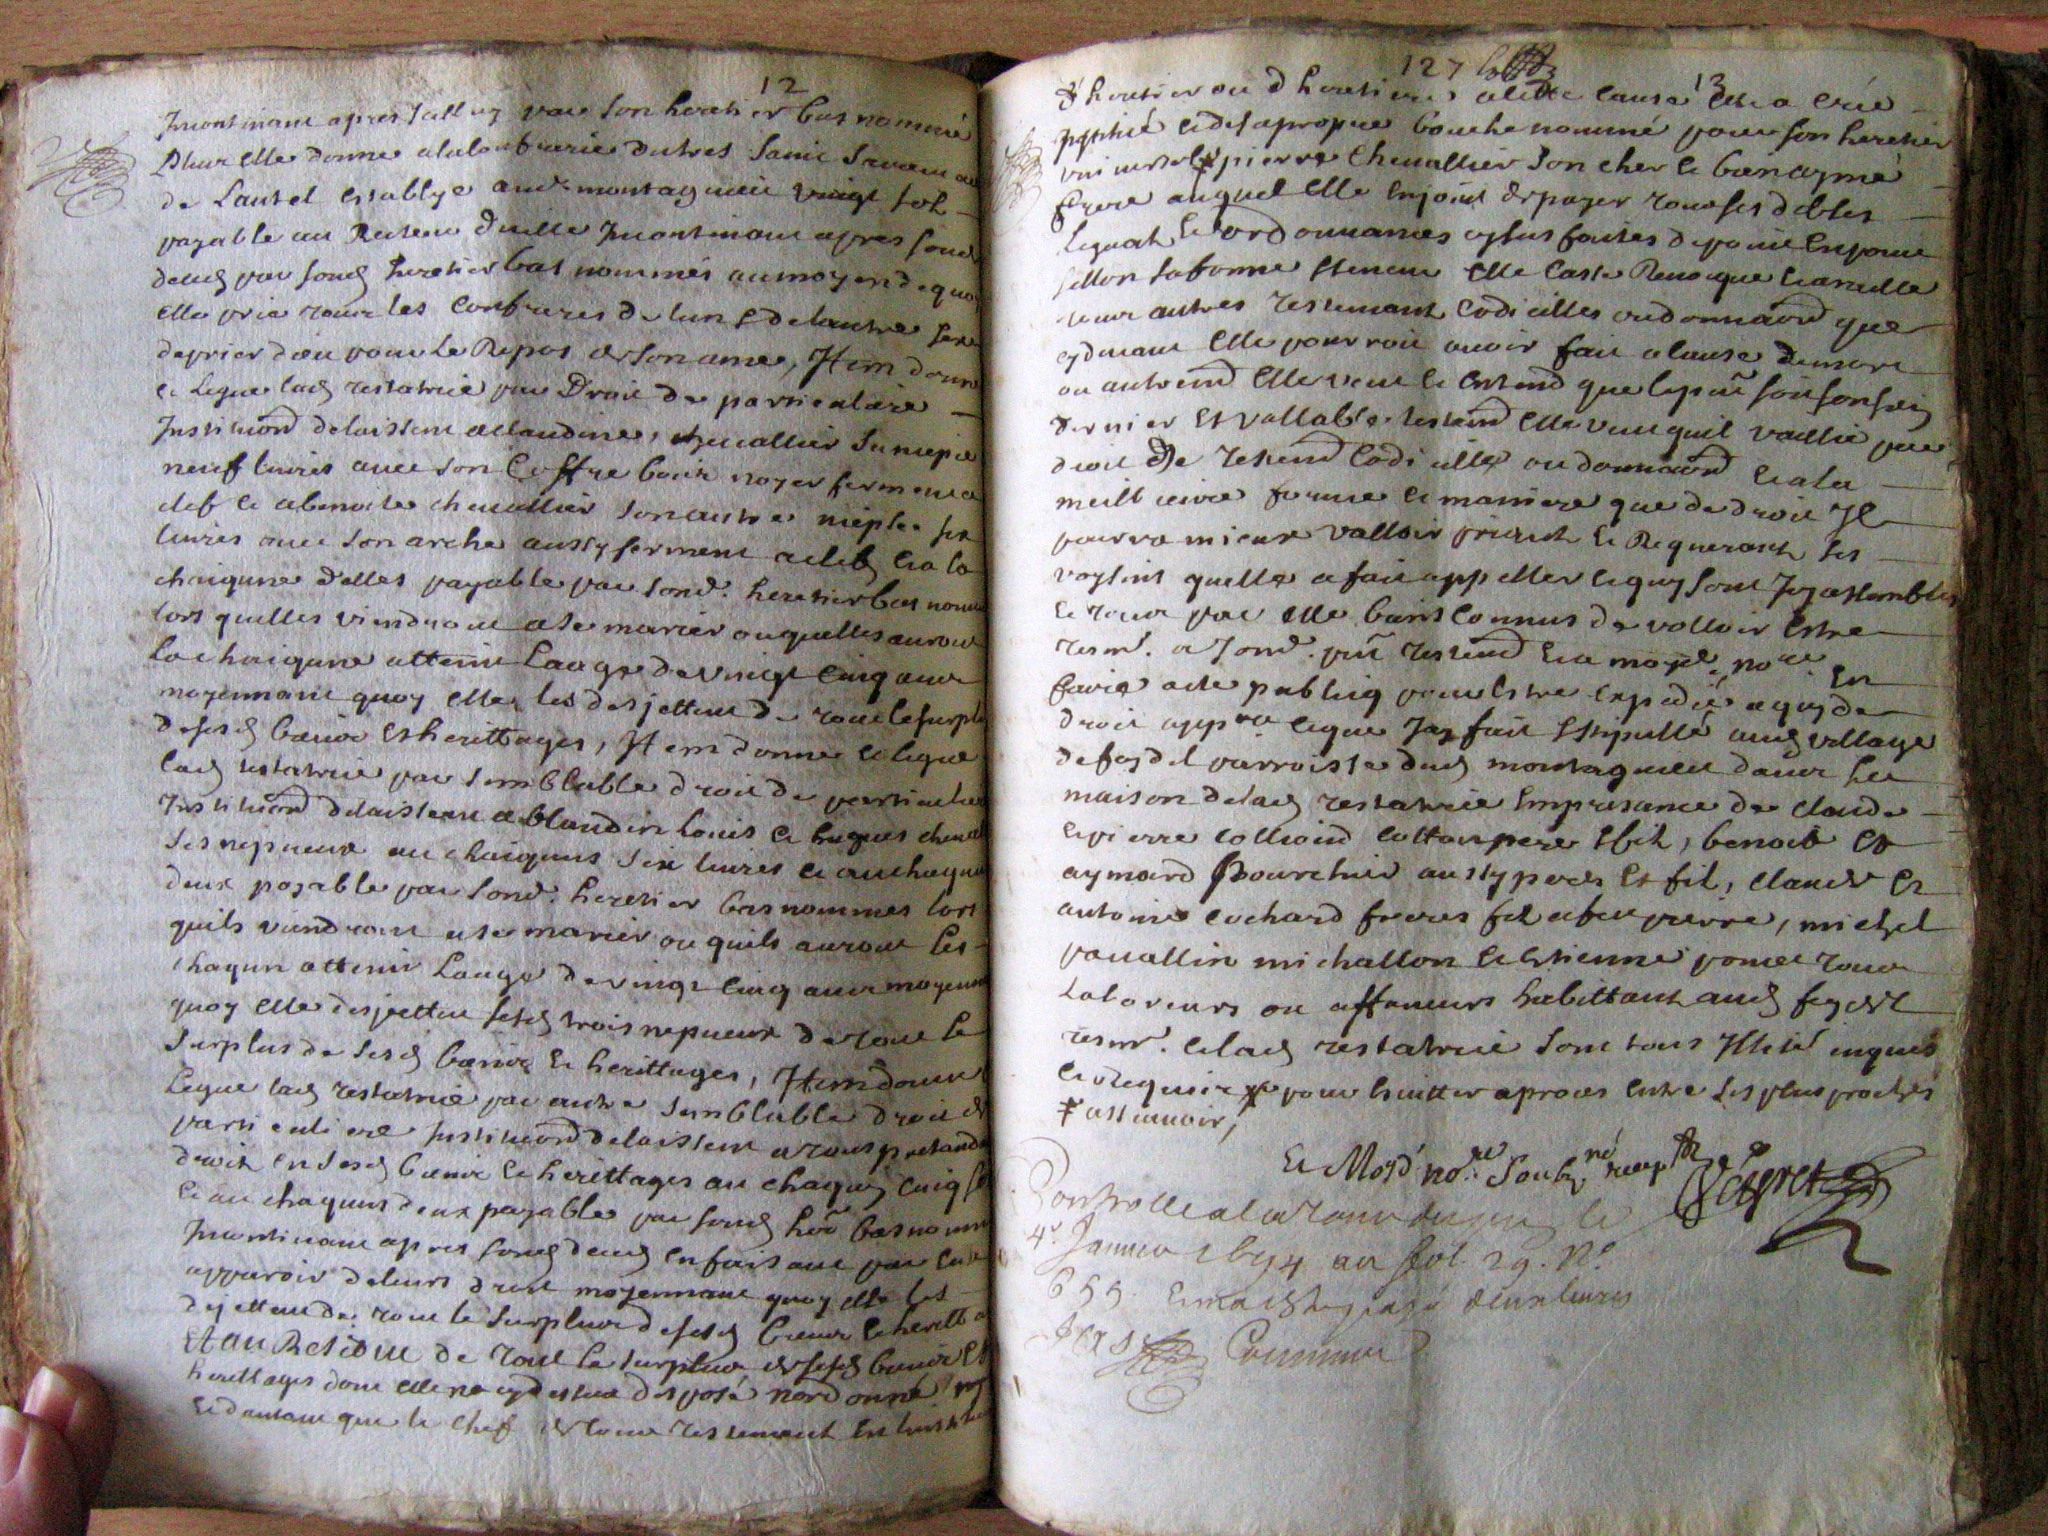 12
Incontinant apres Icelluy par son heretier bas nommé
Plus elle donne a la confrerie du tres Sainct Sacrement
de Lautel establye aud montagnieu vingt solz
payable au Recteur d'icelle Incontinant apres sond
deces par sond heretier bas nommés au moyen de quoy
elle prie tous les confreres de lun & de lautre sexe
de prier dieu pour le Repos de son ame, Item donne
et legue lad testatrice par Droit de particuliere
Institution delaissem a claudine chevallier sa niepce
neuf livres avec son coffre bois noyer fermant a
clef et a benoite chevallier son autre niepce six
livres avec son arche aussy fermant a clef et a la
chaigune d'elles payable par sond. heretier bas nommé
lors quelles viendront a se marier ou quelles auront
la chaigune atteint Laage de vingt cinq ans
moyennant quoy elle les desjettent de tout le surplus
de sesd biens et herittages, Item donne et legue
lad testatrice par semblable droit de particuliere
Institution delaissem a blandin Louis et hugues cheval
ses nepveux au chaiguns six livres et au chaigun
deux payable par sond. heretier bas nommes lors
quils viendront a se marier ou quils auront les
chagun atteint Laage de vingt cinq ans moyennant
quoy elle desjettent sesd trois nepveux de tout le
surplus de sesd biens et herittages, Item donne
Legue lad testatrice par autre semblable droit de
particuliere Institution delaissem a tous pretendants
droit en sesd biens et herittages au chaqun cinq solz
et au chaquns deux payable par sond her bas nommé
Incontinant apres sond deces en faisant par eux
apparoir de leurs droit moyennant quoy elle les
dejettent de tout le surplus de sesd biens et heritta
Et au Residue de tout le surplus de sesd biens Et
herittages dont elle na cy dessus disposé n'ordonné
et d'autant que le chef de tout testament est linst
127
13
d'heretier ou d'heretiere a cette cause elle a crée
Institué et de sa propre bouche nommé pour son heretier
universel pierre chevallier son cher et bien aymé
frere auquel elle enjoint de payer tous ses debtes
legatz et ordonnances cy sus faites de point en point
sellon sa forme & teneur elle casse Revoque et annulle
tous autres testemant codicilles ou donnaon que
cy devant elle pourroit avoir fait a cause de mort
ou autrem elle veut et entend que le pnt soit son
dernier et vallable testem elle veut quil vaille par
droit de testem codicille ou donnaon et a la
meillieure forme et maniere que de droit Il
pourra mieux valloir priant et Requerant ses
voysins quelle a fait appeller et quy sont Icy assembles
et tous par elle biens connus de volloir estre
tesm. a sond. pnt testem et a moyd nore En
faire acte publiq pour estre expedié a quy de
droit appra ce que Jay fait & stipullé aud village
de feydel parroisse dud montagnieu dans la
maison de lad testatrice En presance de claude
et pierre colliaud cottan pere & fil, benoit Et
aymard Pourchier aussy peres Et fil, claude Et
antoine cochard freres fil a feu pierre, michel
pavallin michallon et estienne ponce tous
laboreurs ou affaneurs habittant aud feydel
tesm. et lad testatrice sont tous Illiteré enquis
et Requis pour linsitter apres entre les plus proches
assçavoir,
Et Moyd. nore. Soubz né recep
Controllé a la Tour du pin le
4e. Janvier 1694 au fol. 29. No.
655